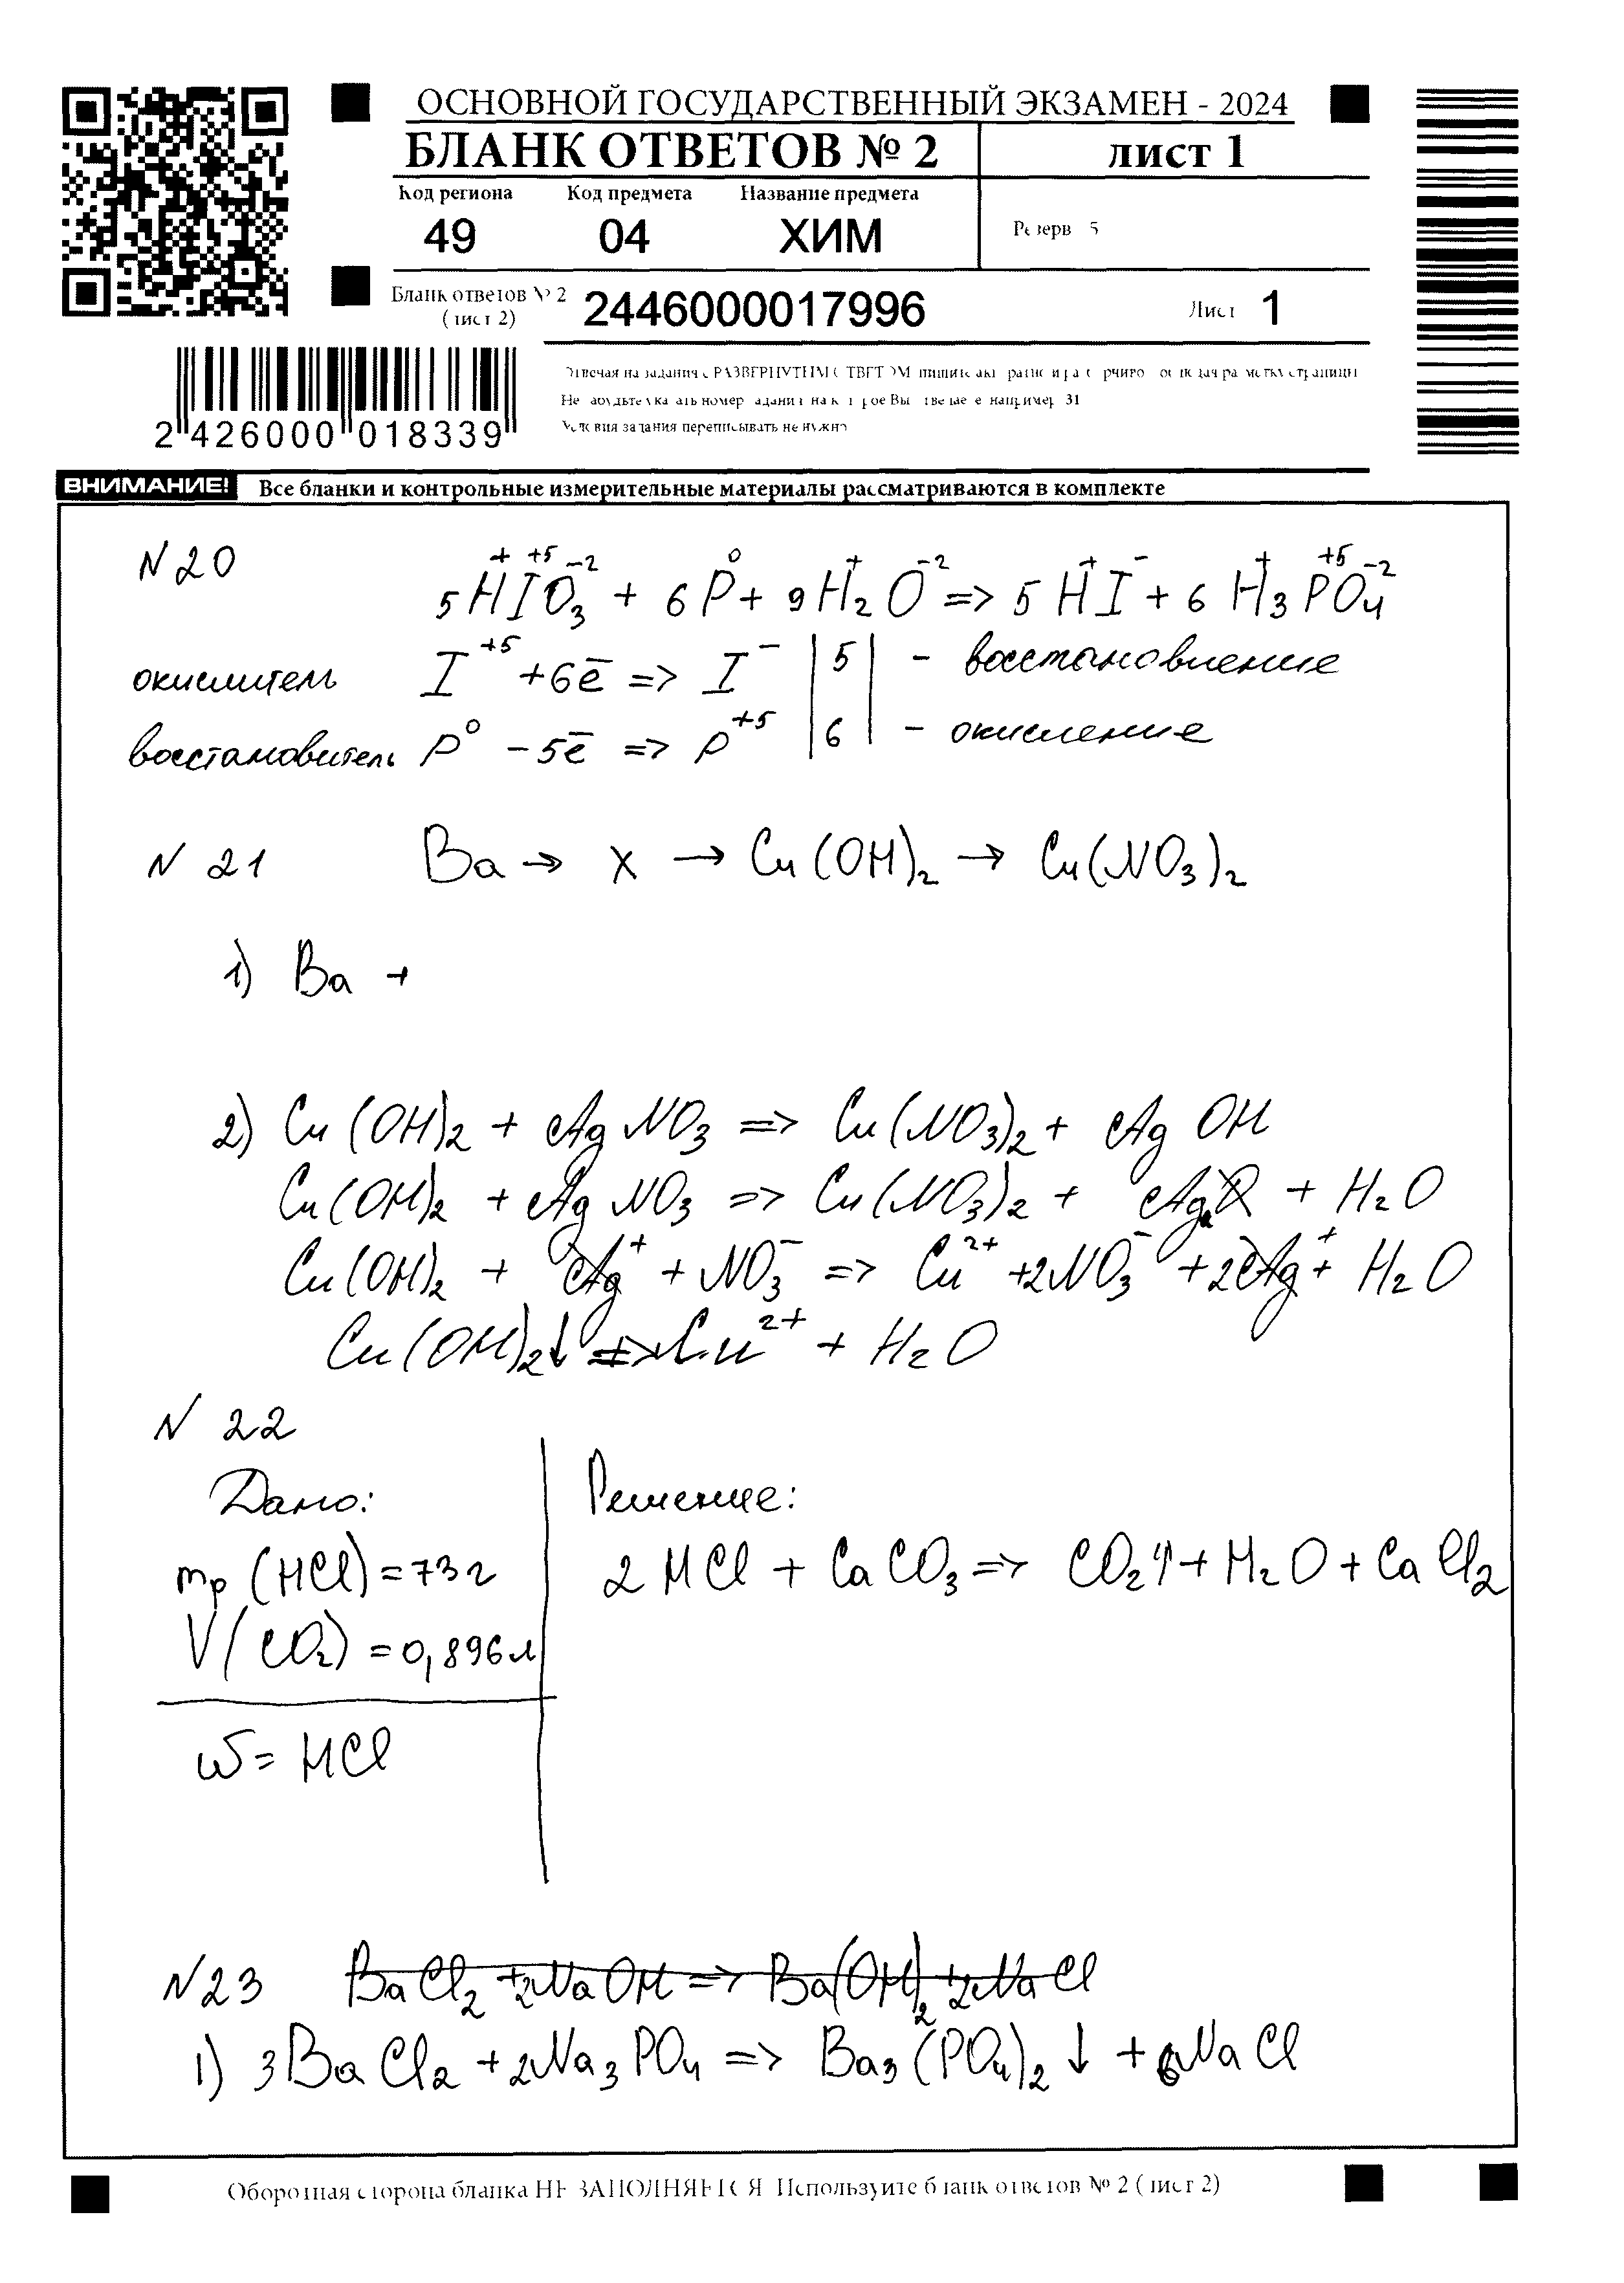 ОСНОВНОЙ ГОСУДАРСТВЕННЫЙ ЭКЗАМЕН - 2024
БЛАНК ОТВЕТОВ № 2 лист 1
Код региона Код предмета Название предмета
49 04 ХИМ
Резерв 5
Бланк ответов № 2 (лист 2) 2446000017996 Лист 1
2 426000 018339
Условия задания переписывать не нужно
ВНИМАНИЕ! Все бланки и контрольные измерительные материалы рассматриваются в комплекте
N 20
+ +5 -2 0 + -2 + - + +5 -2
5HIO3 + 6P + 9H2O => 5HI + 6H3PO4
окислитель I^+5 + 6ē => I^- | 5 | - восстановление
восстановитель P^0 - 5ē => P^+5 | 6 | - окисление
N 21 Ba → X → Cu(OH)2 → Cu(NO3)2
1) Ba +
2) Cu(OH)2 + AgNO3 => Cu(NO3)2 + AgOH
Cu(OH)2 + AgNO3 => Cu(NO3)2 + Ag + H2O
Cu(OH)2 + Ag^+ + NO3^- => Cu^2+ + 2NO3^- + 2Ag^+ + H2O
Cu(OH)2↓ => Cu^2+ + H2O
N 22
Дано: Решение:
mр (HCl) = 73 г 2HCl + CaCO3 => CO2↑ + H2O + CaCl2
V(CO2) = 0,896 л
ω = HCl
N23 BaCl2 + 2NaOH => Ba(OH)2 + 2NaCl
1) 3BaCl2 + 2Na3PO4 => Ba3(PO4)2↓ + 6NaCl
Оборотная сторона бланка НЕ ЗАПОЛНЯЕТСЯ. Используйте бланк ответов № 2 (лист 2)